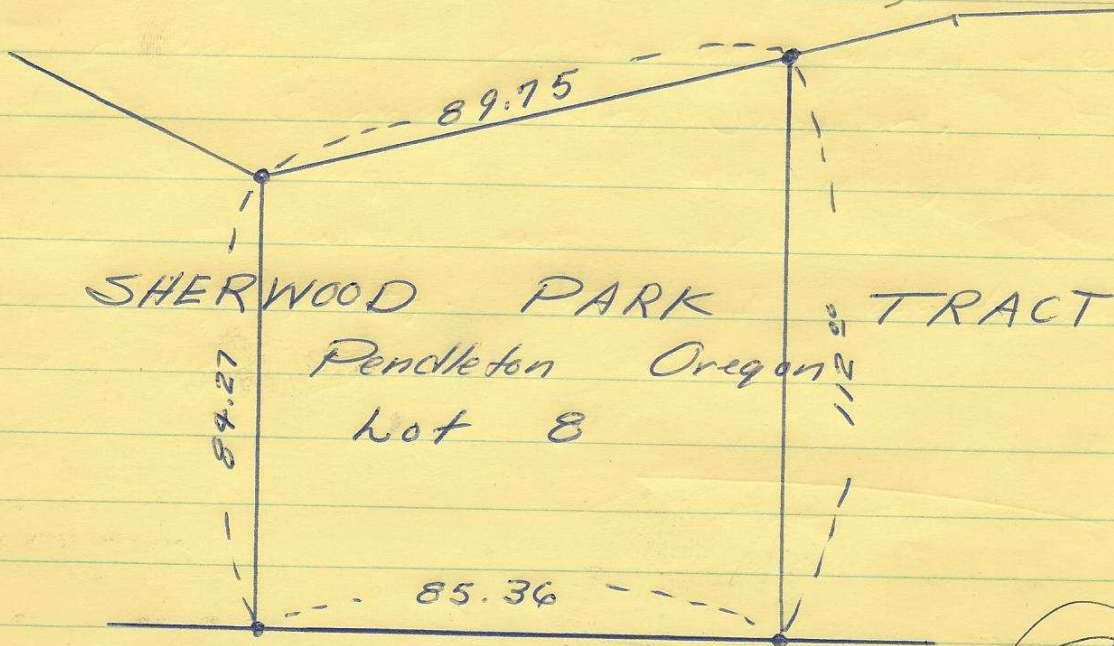 89.75
SHERWOOD PARK TRACT
Pendleton Oregon
Lot 8
84.27
112.00
85.36